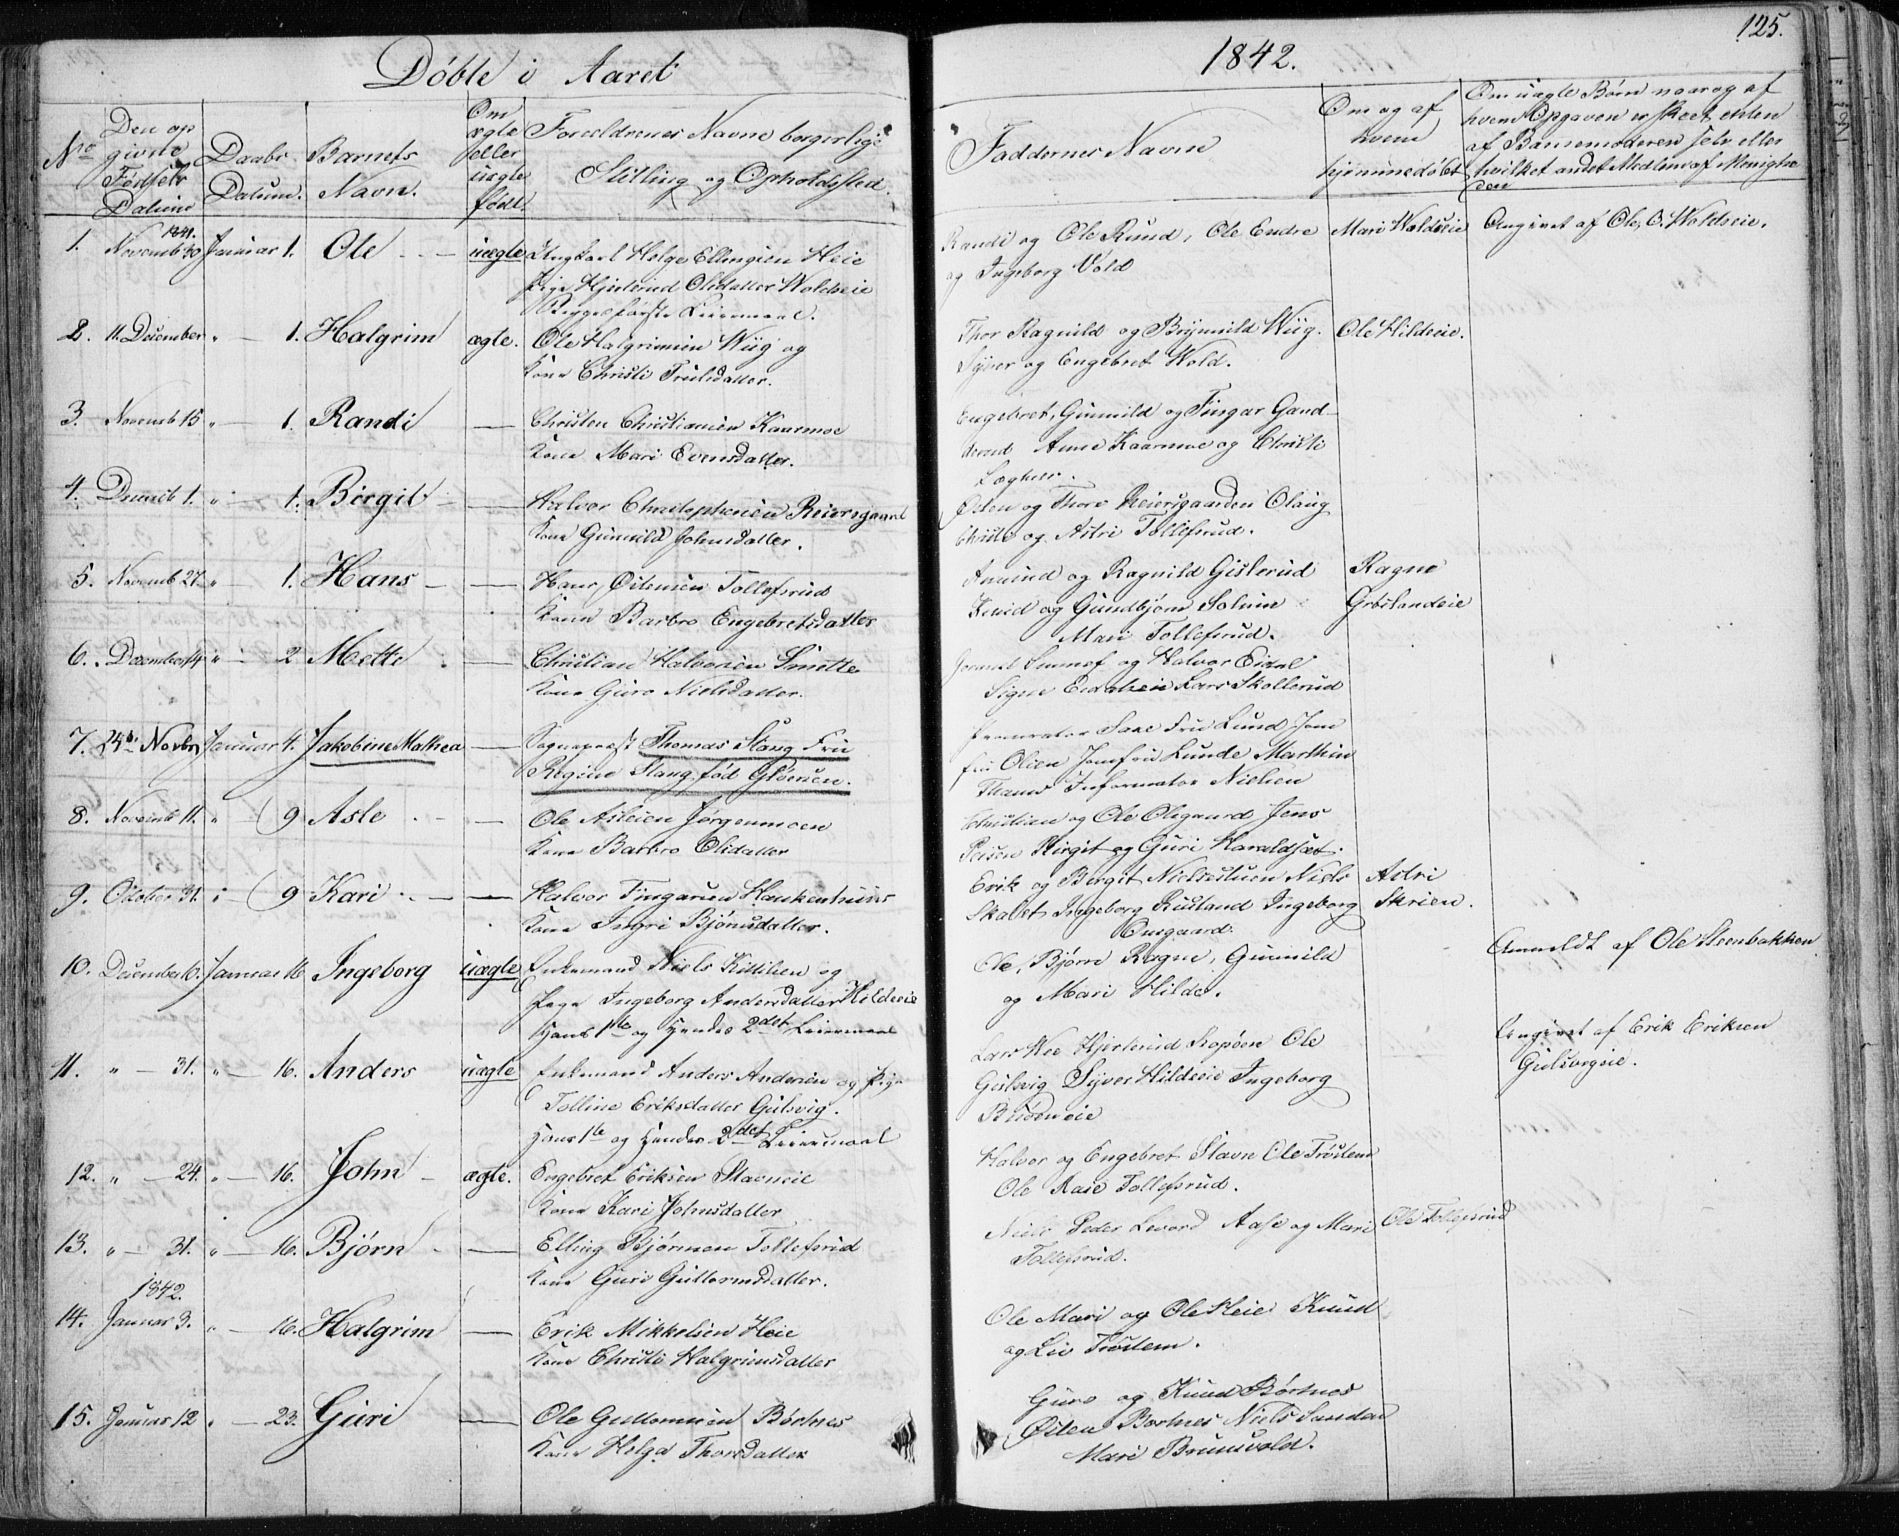 Döbte i Aaret
1842.
125.
No
Den op
givne
Fødsels
Datum
Daabs
Datum.
Barnets
Navn.
Om
ægte
eller
uægte
født.
Forældrenes Navne borgerlige
Stilling og Opholdssted.
Faddernes Navne
Om og af
hvem
hjemmedøbt
Om uægte Børn naar og af
hvem Opgaven er skeet enten
af Barnemoderen selv eller
hvilket andet Medlem af Menighe
den
1841.
1. Novemb 30 Januar 1. Ole uægte Ungkarl Helge Ellingsen Heie
Pige Olsdatter Woldseie
Begges første Leiermaal.
Randi og Ole Ruud, Ole Endre
og Ingeborg Vold
Mari Woldseie
Angivet af Ole O. Woldseie.
2. 11. December " 1. Halgrim ægte. Ole Halgrimsen Wiig og
Kone Christi Trulsdatter.
Thor Ragnild og Brynnild Wiig.
Syver og Engebret Wold.
Ole Hildseie.
3. Novemb 15 " 1. Randi — Christen Christiansen Kaarmoe
Kone Mari Evensdatter.
Engebret, Gunnild og Tingar Gand
derud Anne Kaarmoe og Christi
4. Decemb 1. " 1. Birgit — Halvor Christophersen Reiersgaard
Kone Gunnild Johnsdatter.
Østen og Thore Reiersgaarden Olaug
Christi og Astri Tollefsrud.
5. Novemb 27. " 1. Hans — Hans Østensen Tollefsrud
Kone Barbro Engebretsdatter
Amund og Ragnild Gislerud
Knud og Gundbjørn Solum
Mari Tollefsrud.
Ragne
Grøslandeie
6. December 14 " 2 Mette — Christian Halvorsen Smette
Kone Guro Nielsdatter.
og Halvor Eidal
Signe Lars Skollerud
7. 24de Novbr Januar 4. Jakobine Mathea — Sognepræst Thomas Stang Fru
Regine Stang, fød Gløersen.
Procurator Saxe Fru Lund Jom
fru Olsen Jomfru Lunde Marthin
Thams Informator Nielsen
8. Novemb 11. " 9 Asle — Ole Aslesen Jørgenmoen
Kone Barbro Olsdatter
Christian og Ole Olsgaard Jens
Persen Birgit og Guri Haraldset.
9. Oktober 31. " 9 Kari — Halvor Tingarsen Haukenhuus
Kone Ingri Bjørnsdatter.
Erik og Bergit Nielsstuen Niels
Skalet Ingeborg Rusland Ingeborg
Ousgaard.
Astri
Skrien.
10. December 10. Januar 16 Ingeborg uægte Enkemand Niels Kittilsen og
Pige Ingeborg Andersdatter Hildseie
Hans 1te og Hendes 2det Leiermaal
Ole, Bjørn Ragne, Gunnild
og Mari Hilde.
Anmeldt af Ole Steenbakken
11. " — 31. " 16. Anders uægte Enkemand Anders Andersen og Pige
Tolline Eriksdatter Gulsvig.
Hans 1te og Hendes 2det Leiermaal
Lars Ole
Gulsvig Syver Hildseie Ingeborg
Angivet af Erik Eriksen
Gulsvigeie.
12. " — 24. " 16. John — ægte. Engebret Eriksen Stavneie
Kone Kari Johnsdatter
Halvor og Engebret Stavn Ole Trøstem
Ole Aase Tollefsrud.
13. " — 31. " 16. Bjørn — Elling Bjørnsen Tollefsrud
Kone Guri Guttormsdatter.
Niels Peder Levord Aase og Mari
Tollefsrud.
Ole Tollefsrud
1842.
14. Januar 3. " 16. Halgrim — Erik Mikkelsen Heie
Kone Christi Halgrimsdatter
Ole Mari og Ole Heie Knud
og Liv Trøstem.
15. Januar 12 " 23. Guri — Ole Guttormsen Børtnes
Kone Helga Thorsdatter
Guro og Knud Børtnes
Østen Børtnes Niels Sander
Mari Bruunvold.